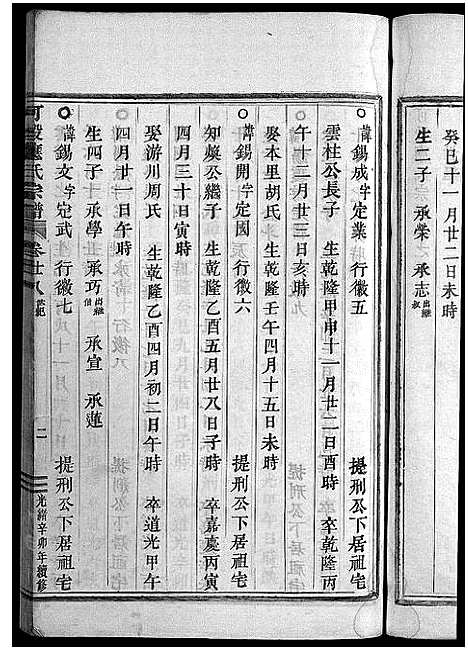 癸巳十一月廿二日未時
生二子 承榮 承志出繼叔
○諱錫成字定業 行徽五 提刑公下居祖宅
雲柱公長子 生乾隆甲申十一月廿二日酉時 卒乾隆丙
午十二月廿三日亥時
娶本里胡氏 生乾隆壬午四月十五日未時
○諱錫開字定國 行徽六 提刑公下居祖宅
知㷰公繼子 生乾隆乙酉五月廿八日子時 卒嘉慶丙寅
四月三十日寅時
娶游川周氏 生乾隆乙酉四月初二日午時 卒道光甲午
四月廿一日午時
生四子 承學 承巧出繼伯 承宣 承蓮
○諱錫文字定武 行徽七 提刑公下居祖宅
應氏宗譜 卷廿八 二 光緒辛卯年續修